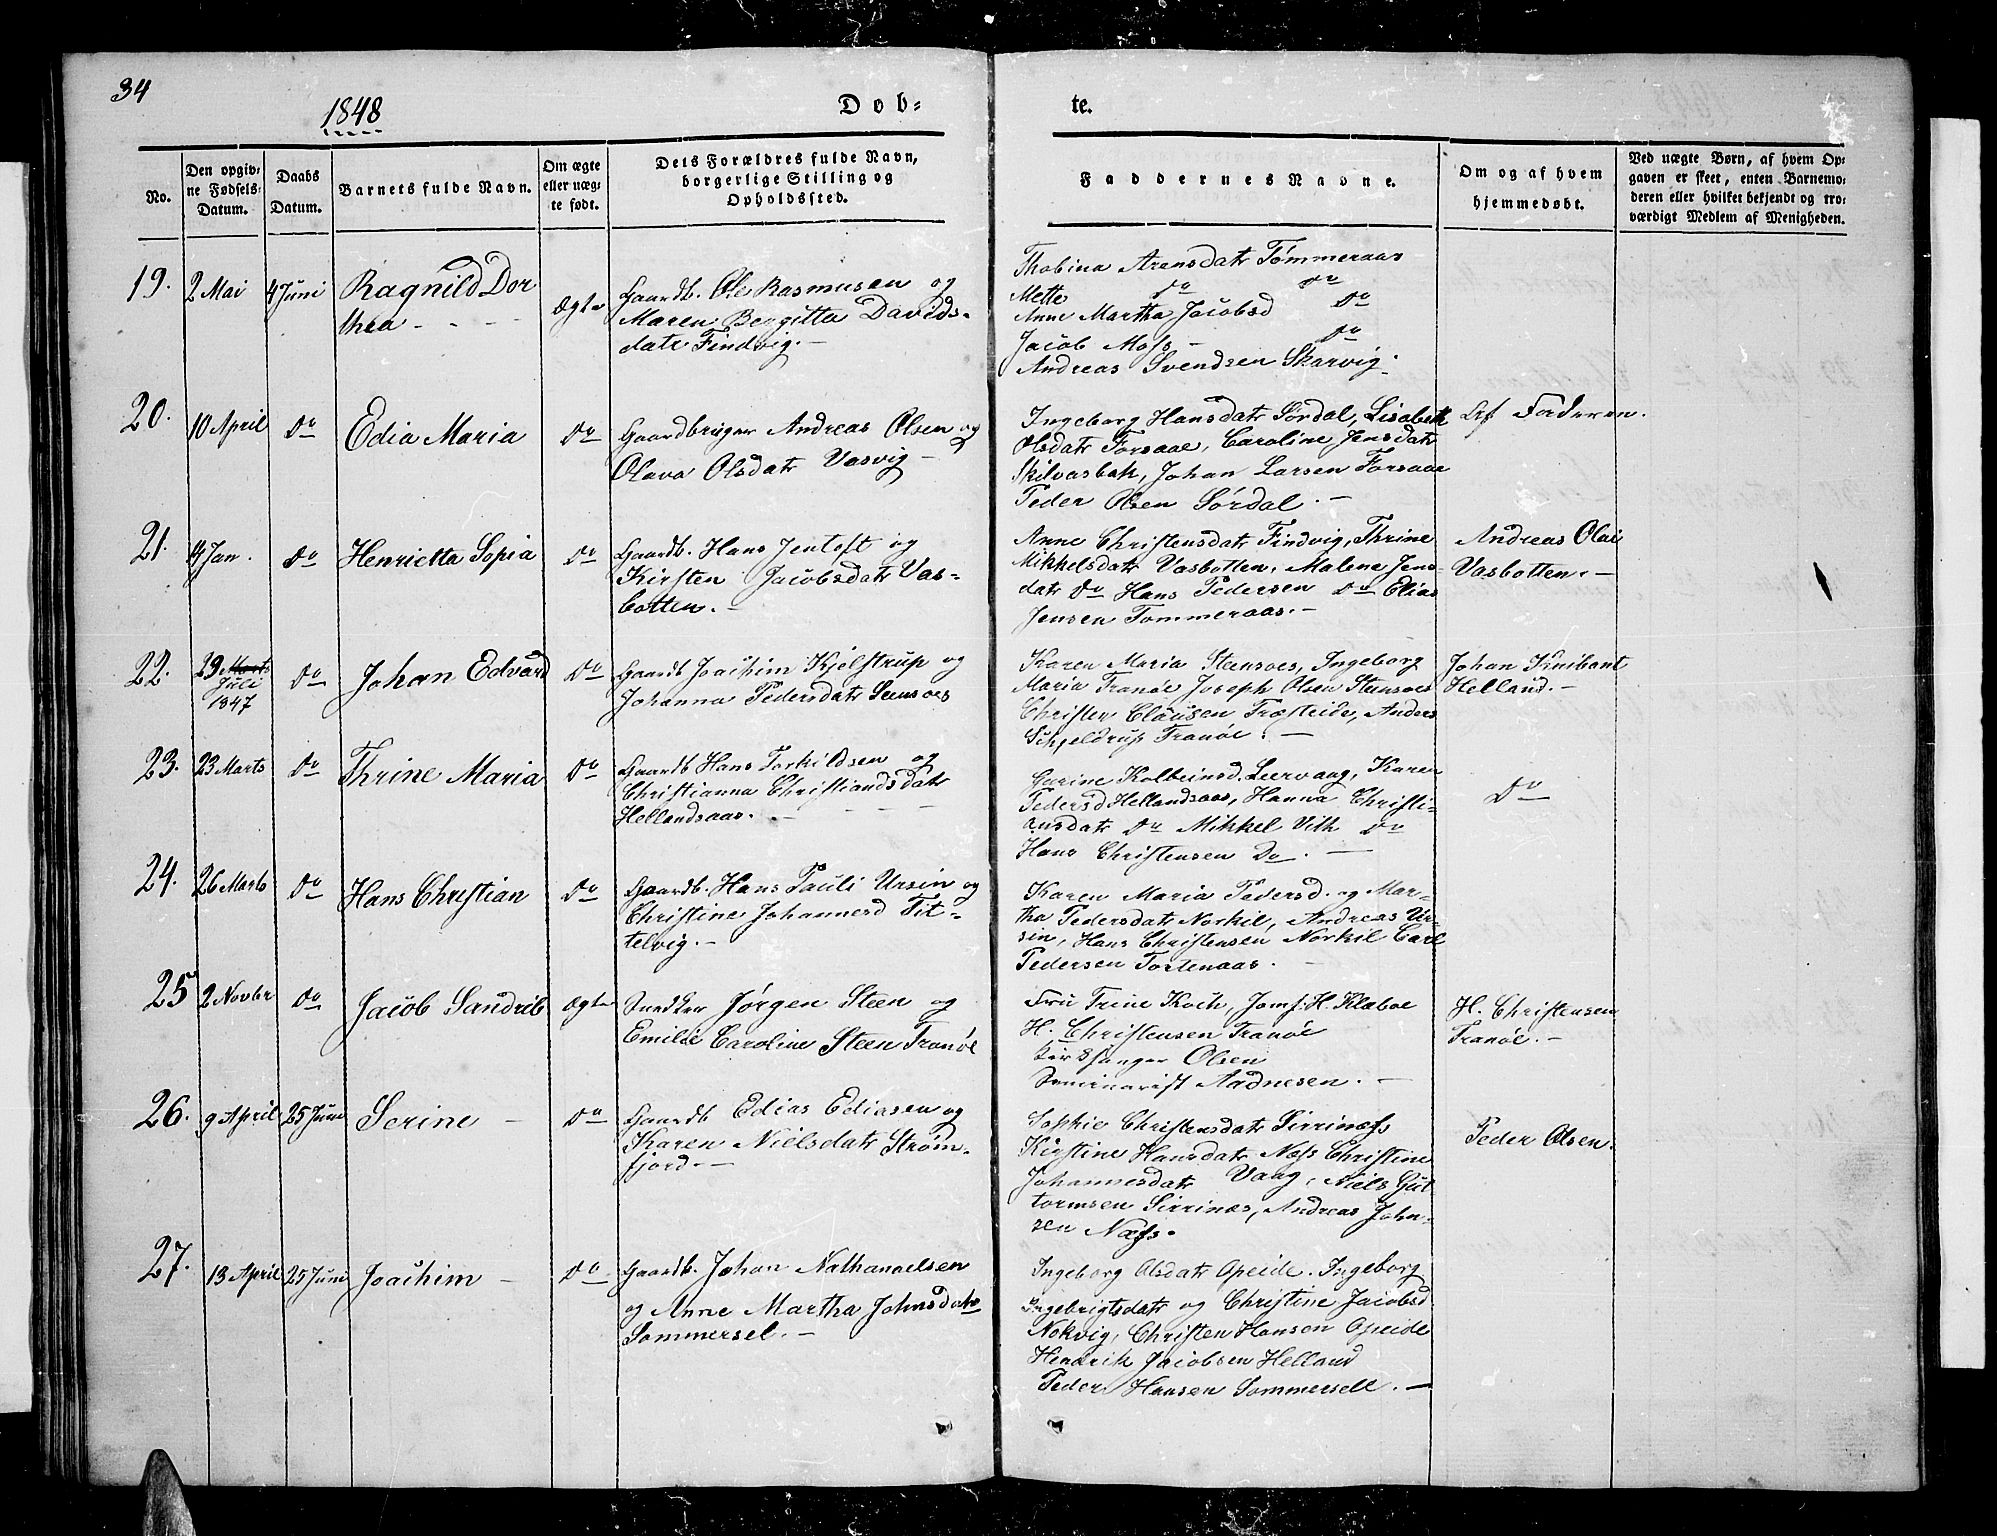 34
1848
Døb-
te.
No.
Den opgiv-
ne Fødsels-
Datum.
Daabs
Datum.
Barnets fulde Navn.
Om ægte
eller uæg-
te født.
Dets Forældres fulde Navn,
borgerlige Stilling og
Opholdssted.
Faddernes Navne.
Om og af hvem
hjemmedøbt.
Ved uægte Børn, af hvem Op-
gaven er skeet, enten Barnemo-
deren eller hvilket bekjendt og tro-
værdigt Medlem af Menigheden.
19.
2 Mai
4 Juni
Ragnild Dor
thea - - - -
Ægte
Gaardb. Ole Rasmusen og
Maren Bergitta Davids-
datr Findvig. -
Thobina Arensdatr Tømmeraas
Mette Do Do
Anne Martha Jacobsd Do
Jacob Moss - Do
Andreas Svendsen Skarvig.
20.
10 April
Do
Edia Maria
Do
Gaardbruger Andreas Olsen og
Olava Olsdatr Vasvig -
Ingeborg Hansdatr Sørdal, Lisabeth
Olsdatr Forsaae, Caroline Jensdatr
Skilvasbak, Johan Larsen Forsaae
Peder Olsen Sørdal. -
af Faderen.
21.
14 Jan.
Do
Henrietta Sopia
Do
Gaardb. Hans Jentoft og
Kirsten Jacobsdatr Vas-
botten. -
Anne Christensdatr Findvig, Thrine
Mikkelsdatr Vasbotten, Malena Jens-
datr Do Hans Pedersen Do Elias
Jensen Tommeraas. -
Andreas Olai
Vasbotten. -
22.
29 Marts
Juli
1847
Do
Johan Edvard
Do
Gaardb Joachim Kjelstrup og
Johanna Pedersdatr Steensoes
Karen Maria Steensoes, Ingeborg
Maria Tranöe Joseph Olsen Steensoes
Christen Clausen Træsteide, Anders
Schjeldrup Tranöe. -
Johan Knibant
Helland. -
23.
23 Marts
Do
Thrine Maria
Do
Gaardb Hans Torkildsen og
Christianna Christiansdatr
Hellandsaas. - - - -
Garine Kolbeinsd. Leervaag, Karen
Pedersd Hellandsaas, Hanna Christi-
ansdatr Do Mikkel Vith Do
Hans Christensen Do. -
Do
24.
26 Marts
Do
Hans Christian
Do
Gaardb. Hans Pauli Ursin og
Christine Johannesd Tit-
telvig. -
Karen Maria Pedersd. og Mar-
tha Pedersdatr Norkil, Andreas Ur-
sin, Hans Christensen Norkil Carl
Pedersen Tortenaas.
25
2 Novbr
Do
Jacob Sandrib
Ægte
Snedker Jørgen Steen og
Emilie Caroline Steen Tranöe
Fru Trine Koch, Jomf. H. Klæboe
H. Christensen Tranöe
Kirksanger Olsen
Seminarist Aadnesen. -
H. Christensen
Tranöe. -
26.
9 April
25 Juni
Serine -
Do
Gaardb Edias Ediasen og
Karen Nielsdatr Strøm-
fjord. -
Sophie Christensdatr Sirrinæss
Kirstine Hansdatr Næss Christine
Johannesdatr Vaag, Niels Gut
tormsen Sirrinæs, Andreas John-
sen Næss.
Peder Olsen.
27.
13 April
25 Juni
Joachim -
Do
Gaardb. Johan Nathanaelsen
og Anne Martha Johnsdatr
Sommersel. -
Ingeborg Olsdatr Opeide. Ingeborg
Ingebrigtsdatr og Christine Jacobsd.
Nokvig, Christen Hanson Opeide
Hendrik Jacobsen Helland
Peder Hansen Sommersell. -